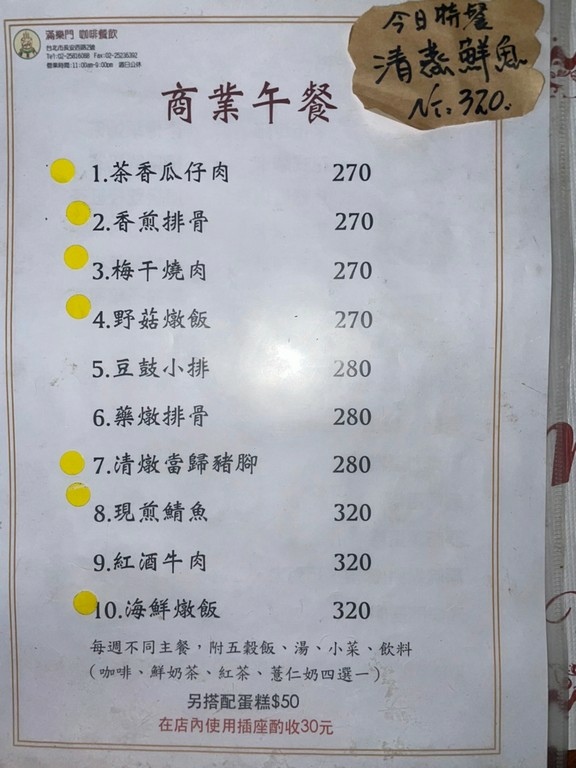 滿樂門 咖啡餐飲
台北市長安西路2號
Tel:02-25816088 Fax:02-25236392
營業時間:11:00am-9:00pm 週日公休
今日特餐
清蒸鮮魚
NT:320.
商業午餐
1.茶香瓜仔肉 270
2.香煎排骨 270
3.梅干燒肉 270
4.野菇燉飯 270
5.豆鼓小排 280
6.藥燉排骨 280
7.清燉當歸豬腳 280
8.現煎鯖魚 320
9.紅酒牛肉 320
10.海鮮燉飯 320
每週不同主餐，附五穀飯、湯、小菜、飲料
（咖啡、鮮奶茶、紅茶、薏仁奶四選一）
另搭配蛋糕$50
在店內使用插座酌收30元